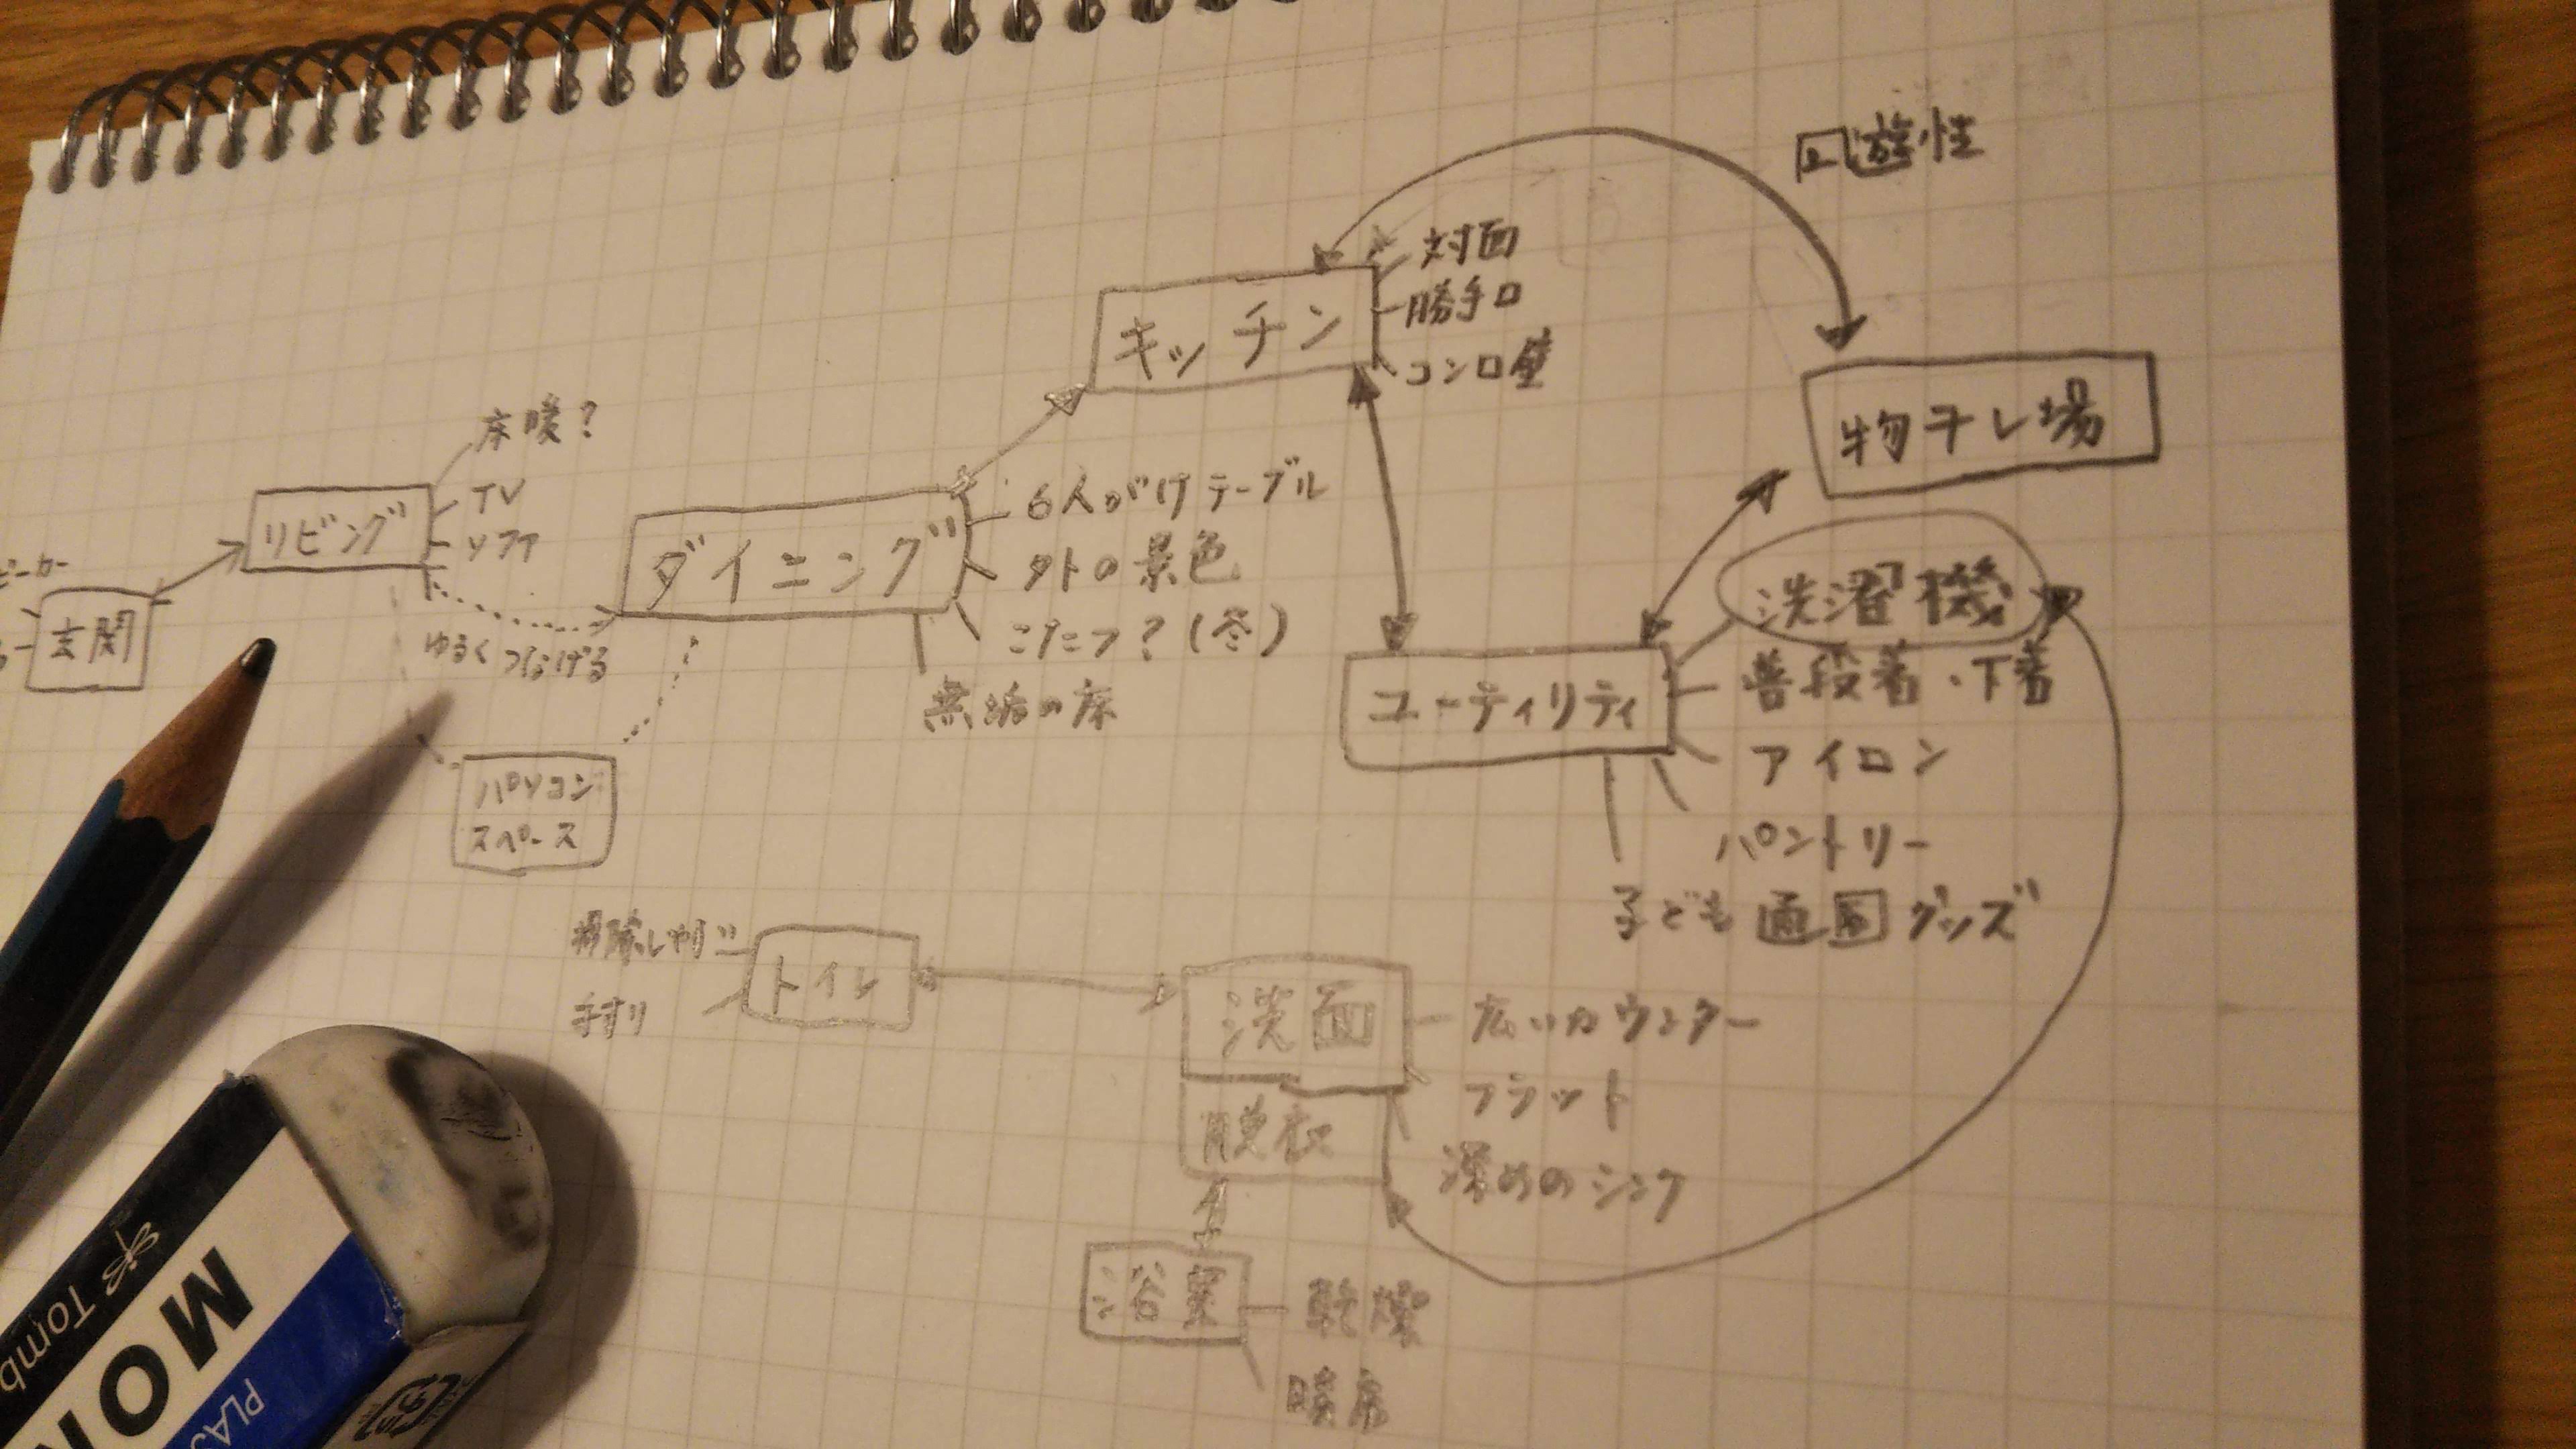 回遊性
対面
キッチン
勝手口
コンロ壁
物干し場
床暖?
TV
ソファ
リビング
玄関
ゆるくつなげる
ダイニング
6人がけテーブル
外の景色
こたつ?(冬)
無垢の床
洗濯機
ユーティリティ
普段着・下着
アイロン
パントリー
子ども通園グッズ
パソコン
スペース
掃除しやすい
手すり
トイレ
洗面
脱衣
広いカウンター
フラット
深めのシンク
浴室
乾燥
暖房
Tomb
MON
PLAS